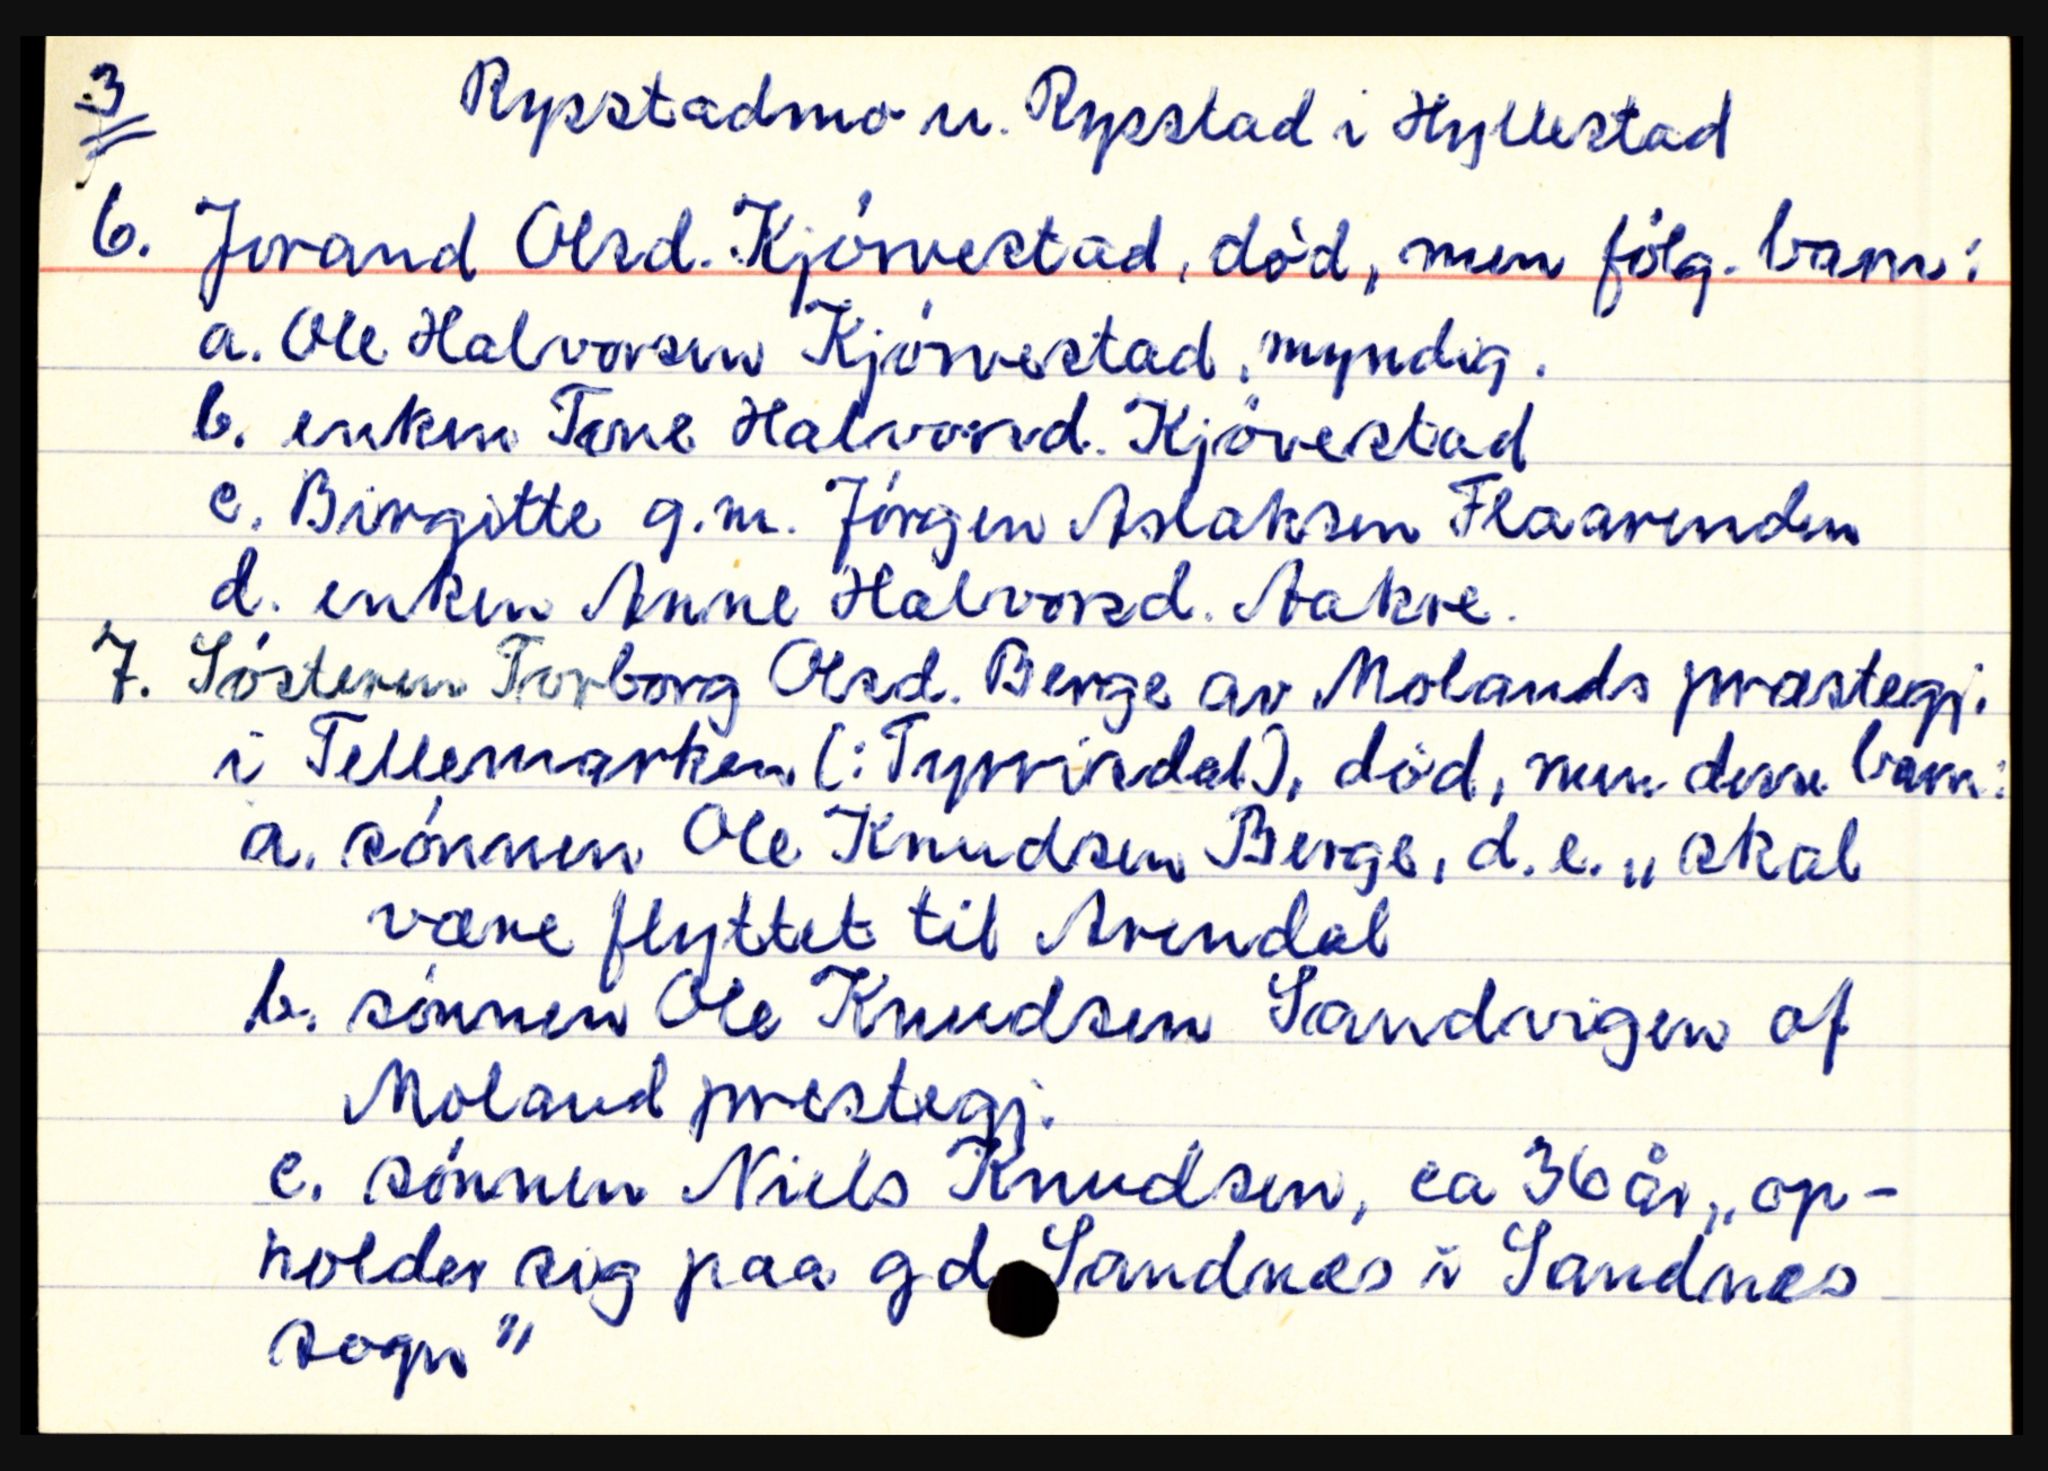 3
Rysstadmo u. Rysstad i Hyllestad
6. Jorand Olsd. Kjörvestad, död, men fölg. barn:
a. Ole Halvorsen Kjörvestad, myndig.
b. enken Tone Halvorsd. Kjövestad
c. Birgitte g.m. Jörgen Aslaksen Flaarenden
d. enken Anne Halvorsd. Aakre.
7. Sösteren Torborg Olsd. Berge av Molands præstegj.
i Tellemarken (: Tyrvirdal), död, men disse barn:
a. sönnen Ole Knudsen Berge, d.e. „skal
være flyttet til Arendal
b. sönnen Ole Knudsen Sandvigen af
Moland prestegj.
c. sönnen Niels Knudsen, ca 36 år, „op-
holder sig paa gd Sandnæs i Sandnæs
sogn"